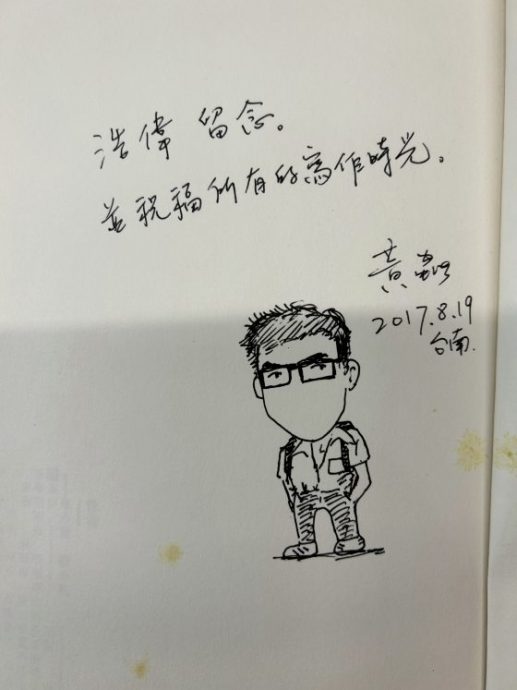 浩偉 留念。
並祝福所有的寫作時光。
黃
2017.8.19
台南.